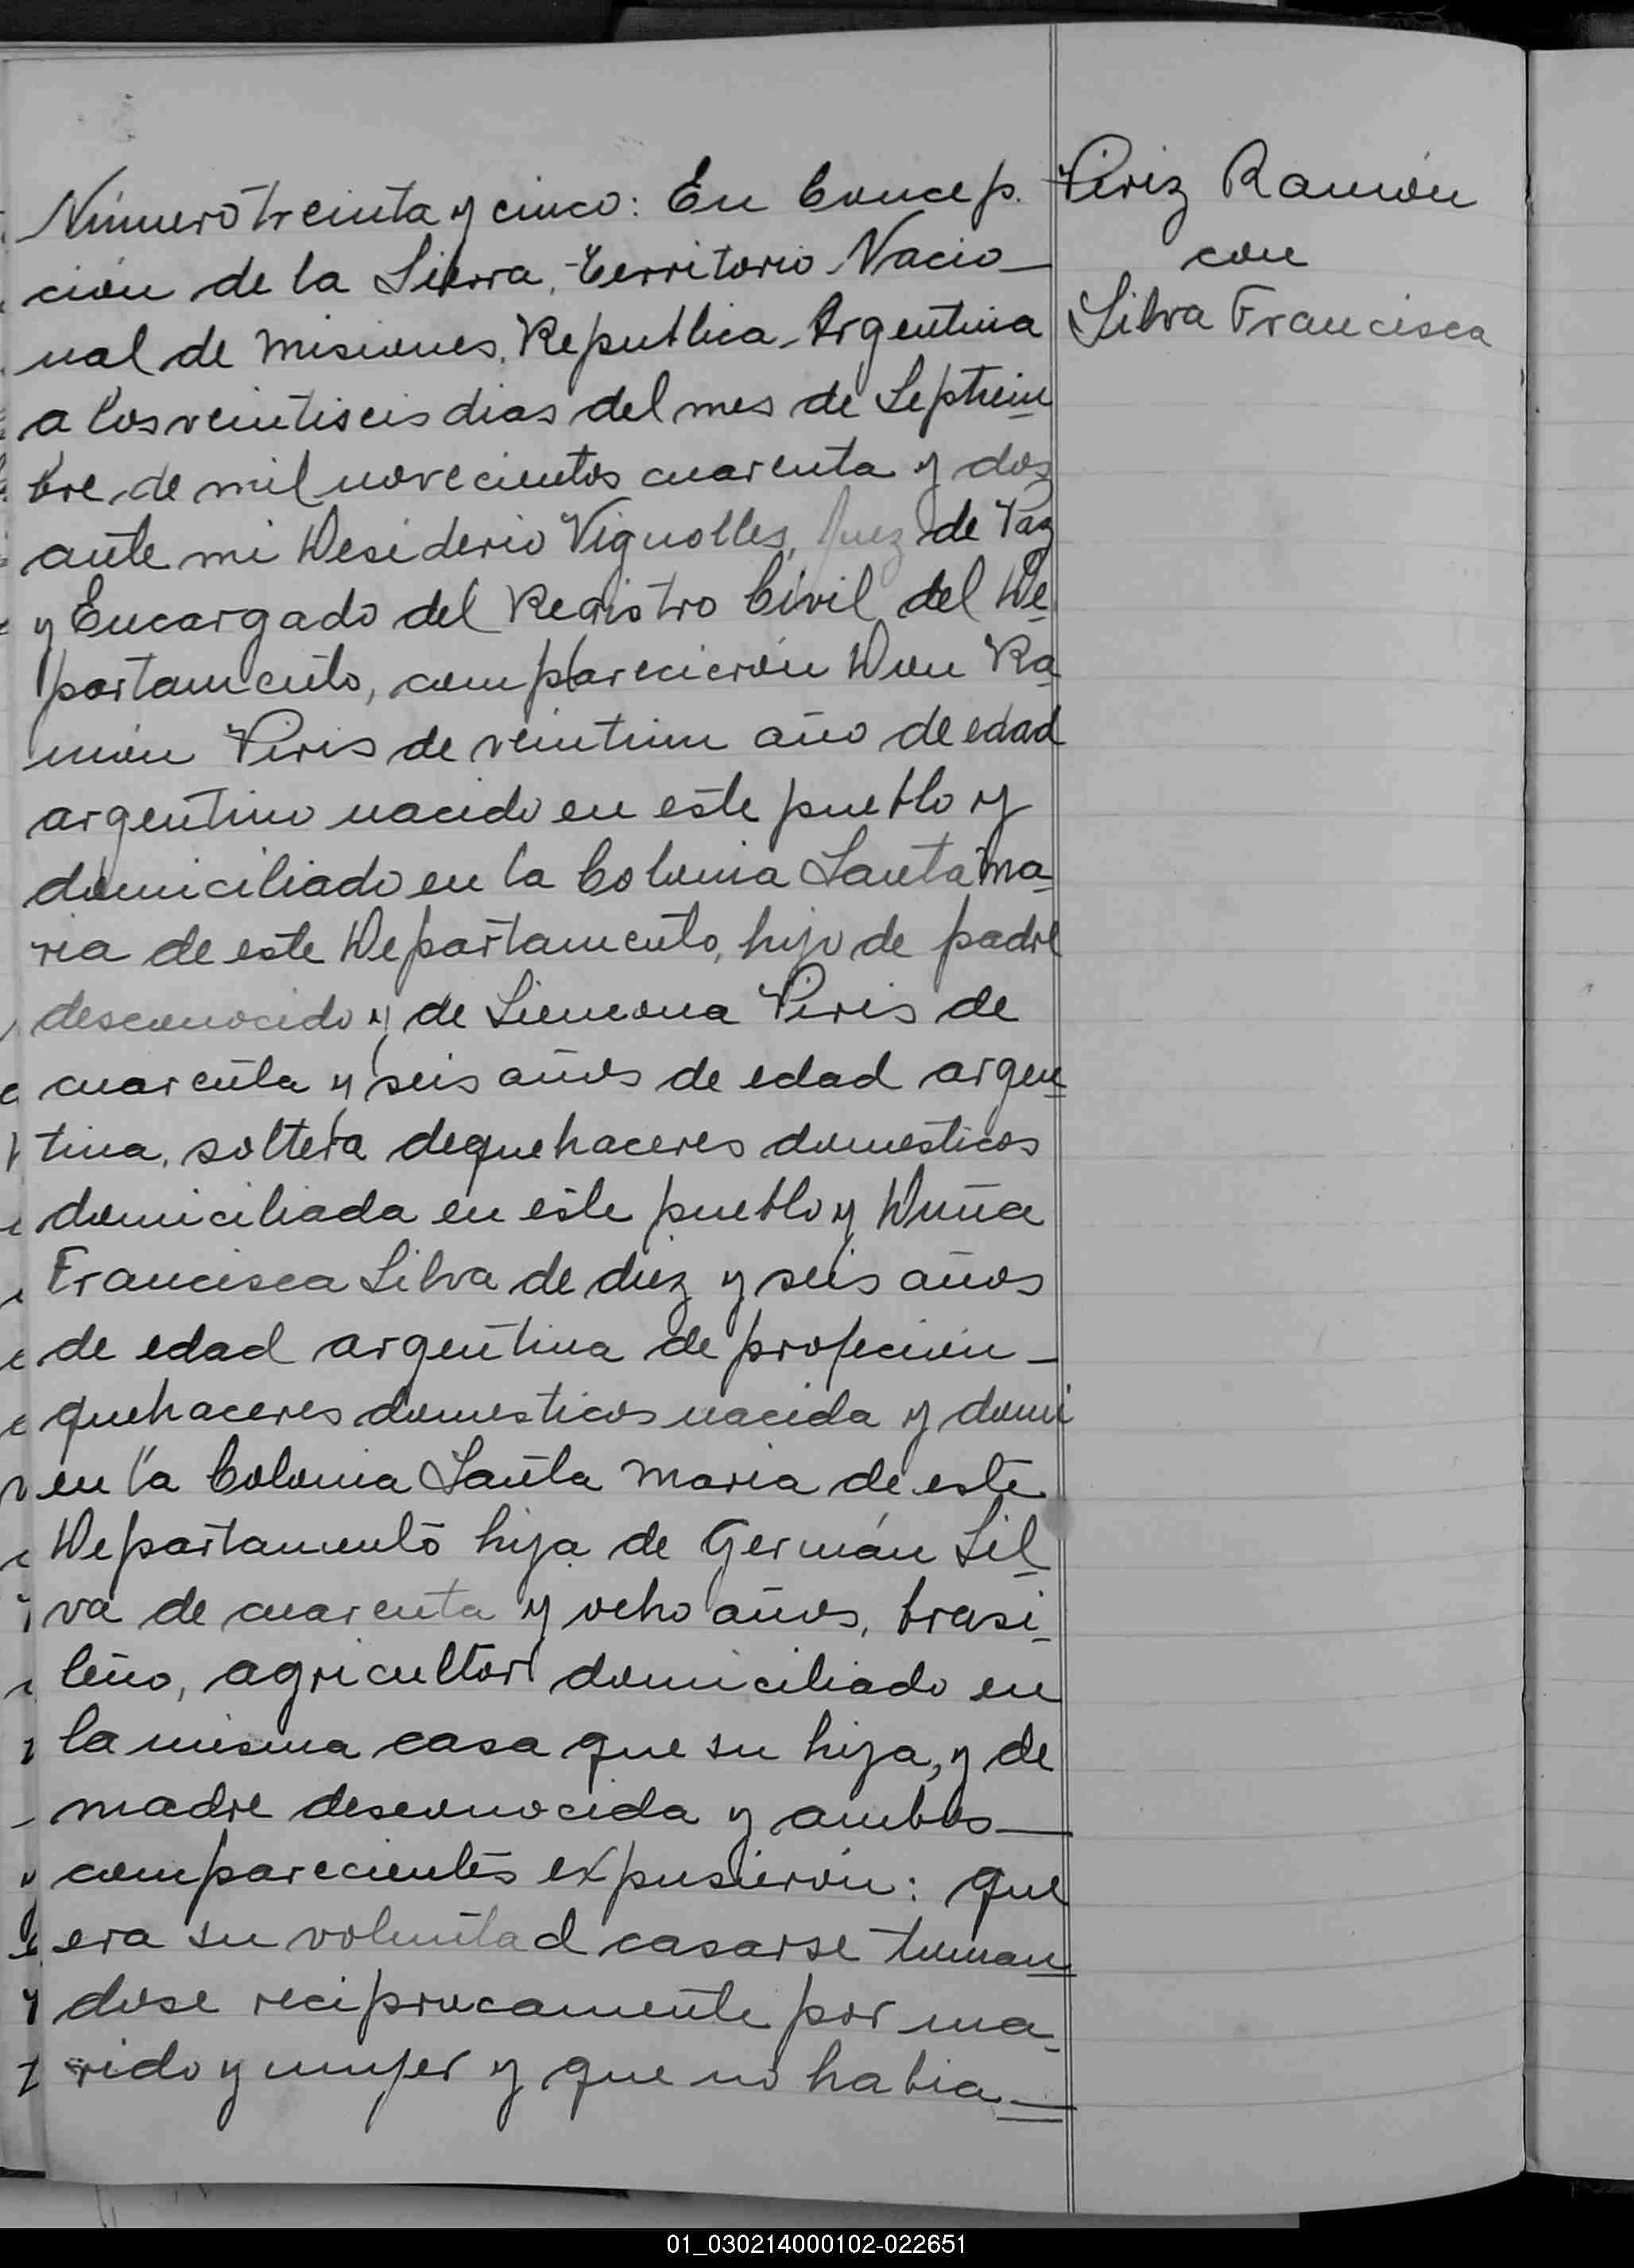 Número treinta y cinco: En Concep.
ción de la Sierra, Territorio Nacio_
nal de Misiones, Republica Argentina
a los veintiseis dias del mes de Septiem
bre de mil novecientos cuarenta y dos
ante mi Desiderio Vignolles, Juez de Paz
y Encargado del Registro Civil del De
partamento, comparecierón Don Ra
món Piris de veintiun año de edad
argentino nacido en este pueblo y
domiciliado en la Colonia Santa Ma
ria de este Departamento, hijo de padre
desconocido y de Simeona Piris de
cuarenta y seis años de edad argen
tina, soltera de quehaceres domesticos
domiciliada en este pueblo y Doña
Francisca Silva de diez y seis años
de edad argentina de profeción_
quehaceres domesticos nacida y domi
en la Colonia Santa Maria de este
Departamento hija de Germán Sil
va de cuarenta y ocho años, brasi
leño, agricultor domiciliado en
la misma casa que su hija, y de
madre desconocida y ambos_
comparecientes expusierón: que
era su voluntad casarse toman
dose reciprocamente por ma
rido y mujer y que no habia_
Piriz Ramón
con
Silva Francisca
01_030214000102-022651